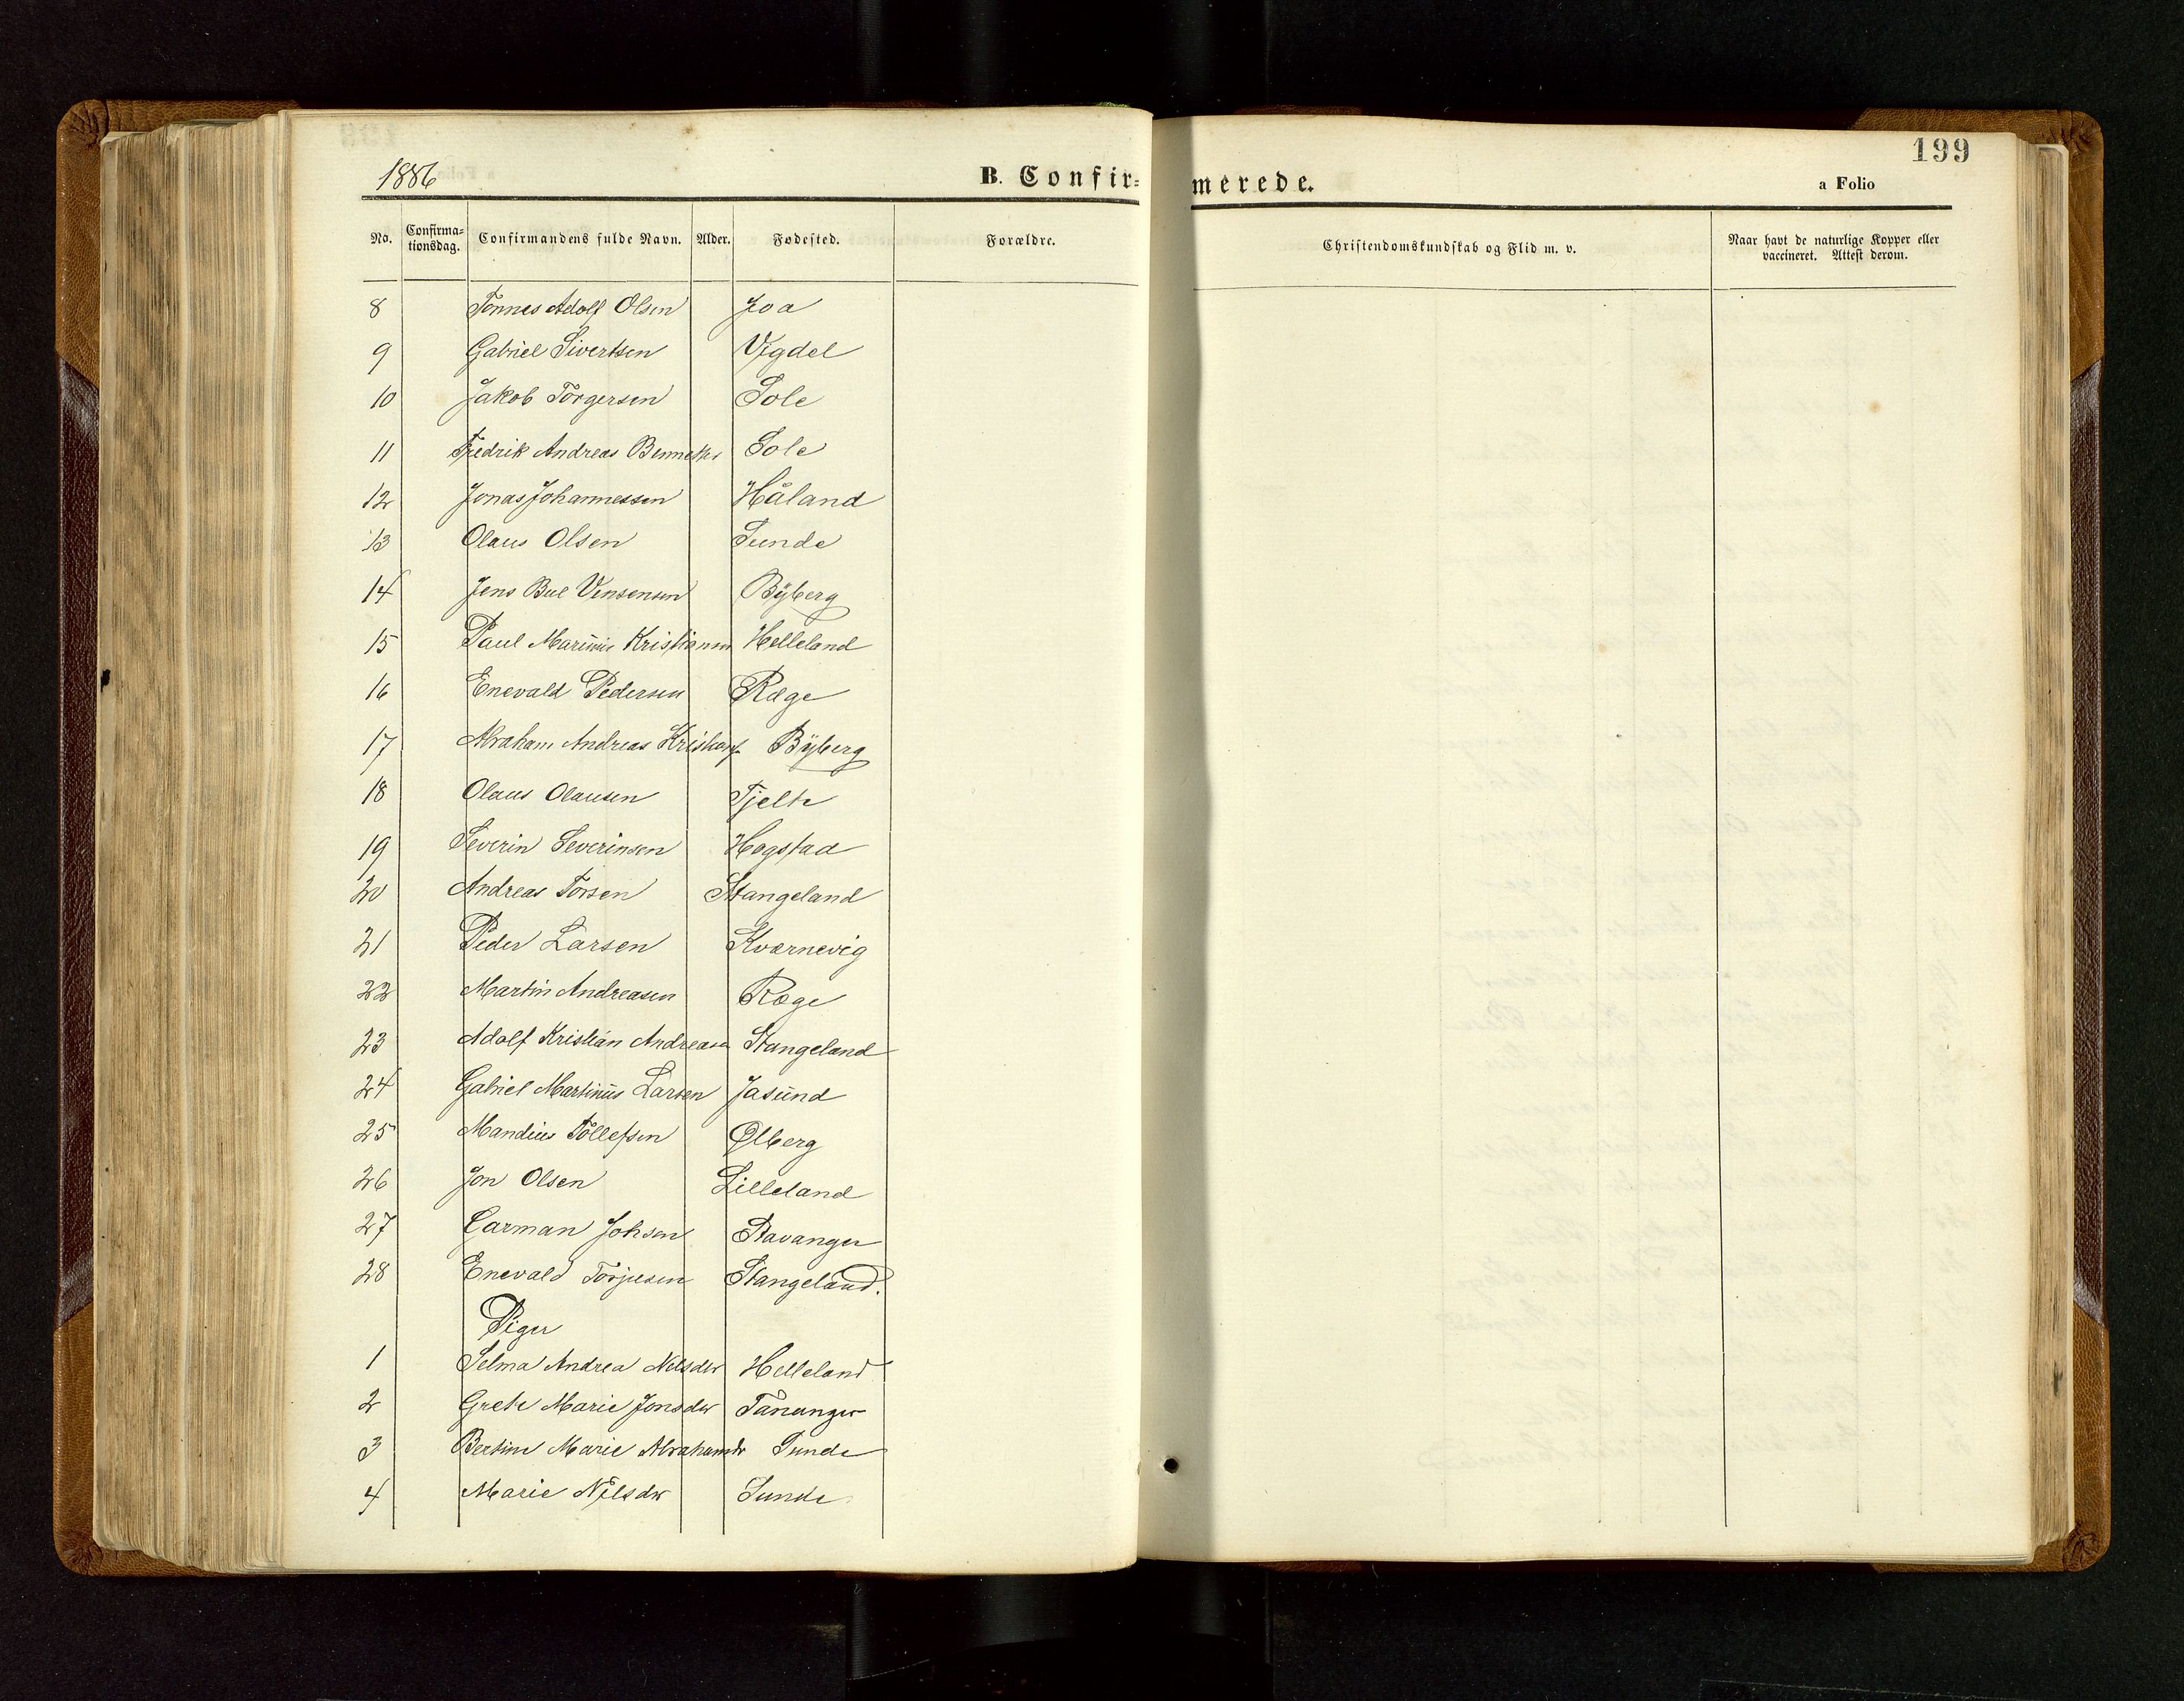 199
1886 B. Confir= merede. a Folio
No. Confirma=tionsdag. Confirmandens fulde Navn. Alder. Fødested. Forældre. Christendomskundskab og Flid m. v. Naar havt de naturlige Kopper eller vaccineret. Attest derom.
8 Tønnes Adolf Olsen Joa
9 Gabriel Sivertsen Vigdel
10 Jakob Torgersen Sole
11 Fredrik Andreas Bennetter Sole
12 Jonas Johannessen Håland
13 Olaus Olsen Sunde
14 Jens Bue Vensensen Byberg
15 Paul Marinius Kristiansen Helleland
16 Enevald Pedersen Ræge
17 Abraham Andreas Byberg
18 Olaus Olausen Tjelte
19 Severin Severinsen Hogstad
20 Andreas Torsen Stangeland
21 Peder Larsen Kvernevig
22 Martin Andreasen Ræge
23 Adolf Kristian Andreasen Stangeland
24 Gabriel Martinus Larsen Jasund
25 Mandius Tollefsen Ølberg
26 Jon Olsen Lilleland
27 Garman Johsen Stavanger
28 Enevald Torjusen Stangeland.
Piger
1 Selma Andrea Nelsdtr Helleland
2 Grete Marie Jonsdtr Tananger
3 Bertine Marie Abrahamdr Sunde
4 Marie Nilsdtr Sunde